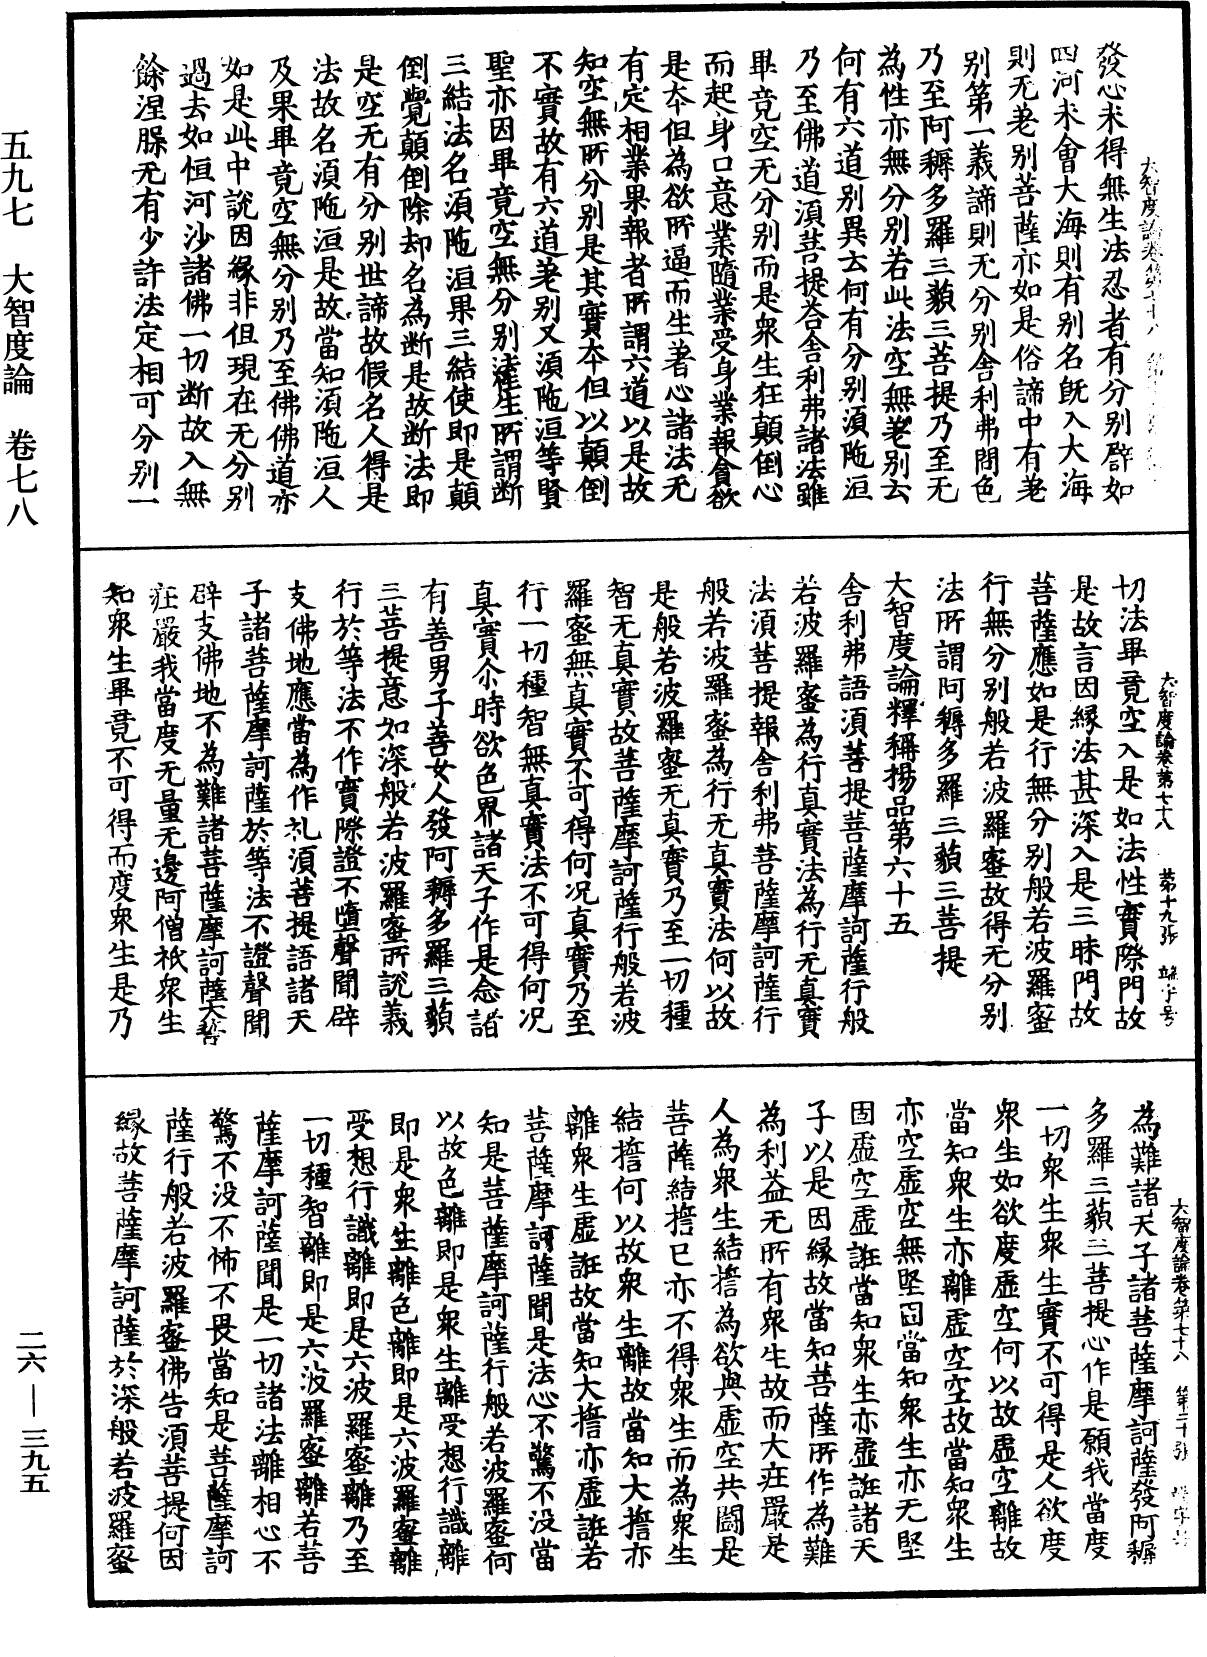 發心未得無生法忍者有分別譬如
四河未會大海則有別名旣入大海
則无差別菩薩亦如是俗諦中有差
別第一義諦則无分別舍利弗問色
乃至阿耨多羅三藐三菩提乃至无
為性亦無分別若此法空無差別云
何有六道別異云何有分別須陁洹
乃至佛道須菩提荅舍利弗諸法雖
畢竟空无分別而是衆生狂顛倒心
而起身口意業隨業受身業報貪欲
是夲但為欲所逼而生著心諸法无
有定相業果報者所謂六道以是故
知空無所分別是其實夲但以顛倒
不實故有六道差別又須陁洹等賢
聖亦因畢竟空無分別法生所謂断
三結法名須陁洹果三結使即是顛
倒覺顛倒除却名為断是故断法即
是空无有分別世諦故假名人得是
法故名須陁洹是故當知須陁洹人
及果畢竟空無分別乃至佛佛道亦
如是此中說因緣非但現在无分別
過去如恒河沙諸佛一切断故入無
餘涅槃无有少許法定相可分別一
大智度論卷第七十八 第十九張
切法畢竟空入是如法性實際門故
是故言因緣法甚深入是三昧門故
菩薩應如是行無分別般若波羅蜜
行無分別般若波羅蜜故得无分別
法所謂阿耨多羅三藐三菩提
大智度論釋稱揚品第六十五
舍利弗語須菩提菩薩摩訶薩行般
若波羅蜜為行真實法為行无真實
法須菩提報舍利弗菩薩摩訶薩行
般若波羅蜜為行无真實法何以故
是般若波羅蜜无真實乃至一切種
智无真實故菩薩摩訶薩行般若波
羅蜜無真實不可得何况真實乃至
行一切種智無真實法不可得何况
真實尒時欲色界諸天子作是念諸
有善男子善女人發阿耨多羅三藐
三菩提意如深般若波羅蜜所說義
行於等法不作實際證不墮聲聞辟
支佛地應當為作礼須菩提語諸天
子諸菩薩摩訶薩於等法不證聲聞
辟支佛地不為難諸菩薩摩訶薩大誓
莊嚴我當度无量无邊阿僧祇衆生
知衆生畢竟不可得而度衆生是乃
大智度論卷第七十八 第二十張
為難諸天子諸菩薩摩訶薩發阿耨
多羅三藐三菩提心作是願我當度
一切衆生衆生實不可得是人欲度
衆生如欲度虛空何以故虛空離故
當知衆生亦離虛空空故當知衆生
亦空虛空無堅固當知衆生亦无堅
固虛空虛誑當知衆生亦虛誑諸天
子以是因緣故當知菩薩所作為難
為利益无所有衆生故而大莊嚴是
人為衆生結擔為欲與虛空共鬪是
菩薩結擔已亦不得衆生而為衆生
結擔何以故衆生離故當知大擔亦
離衆生虛誑故當知大擔亦虛誑若
菩薩摩訶薩聞是法心不驚不没當
知是菩薩摩訶薩行般若波羅蜜何
以故色離即是衆生離受想行識離
即是衆生離色離即是六波羅蜜離
受想行識離即是六波羅蜜離乃至
一切種智離即是六波羅蜜離若菩
薩摩訶薩聞是一切諸法離相心不
驚不没不怖不畏當知是菩薩摩訶
薩行般若波羅蜜佛告須菩提何因
緣故菩薩摩訶薩於深般若波羅蜜
五九七 大智度論 卷七八
二六—三九五